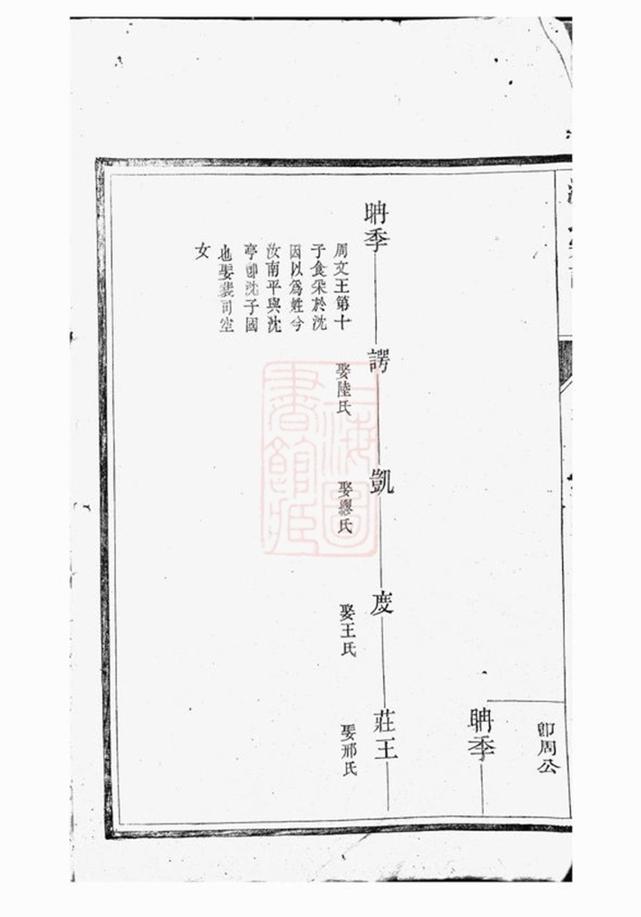 即周公
聃季
聃季
諤
凱
度
莊王
周文王第十
子食采於沈
因以爲姓今
汝南平與沈
亭即沈子國
也娶裴司空
女
娶陸氏
娶氏
娶王氏
娶邢氏
海圖
書館